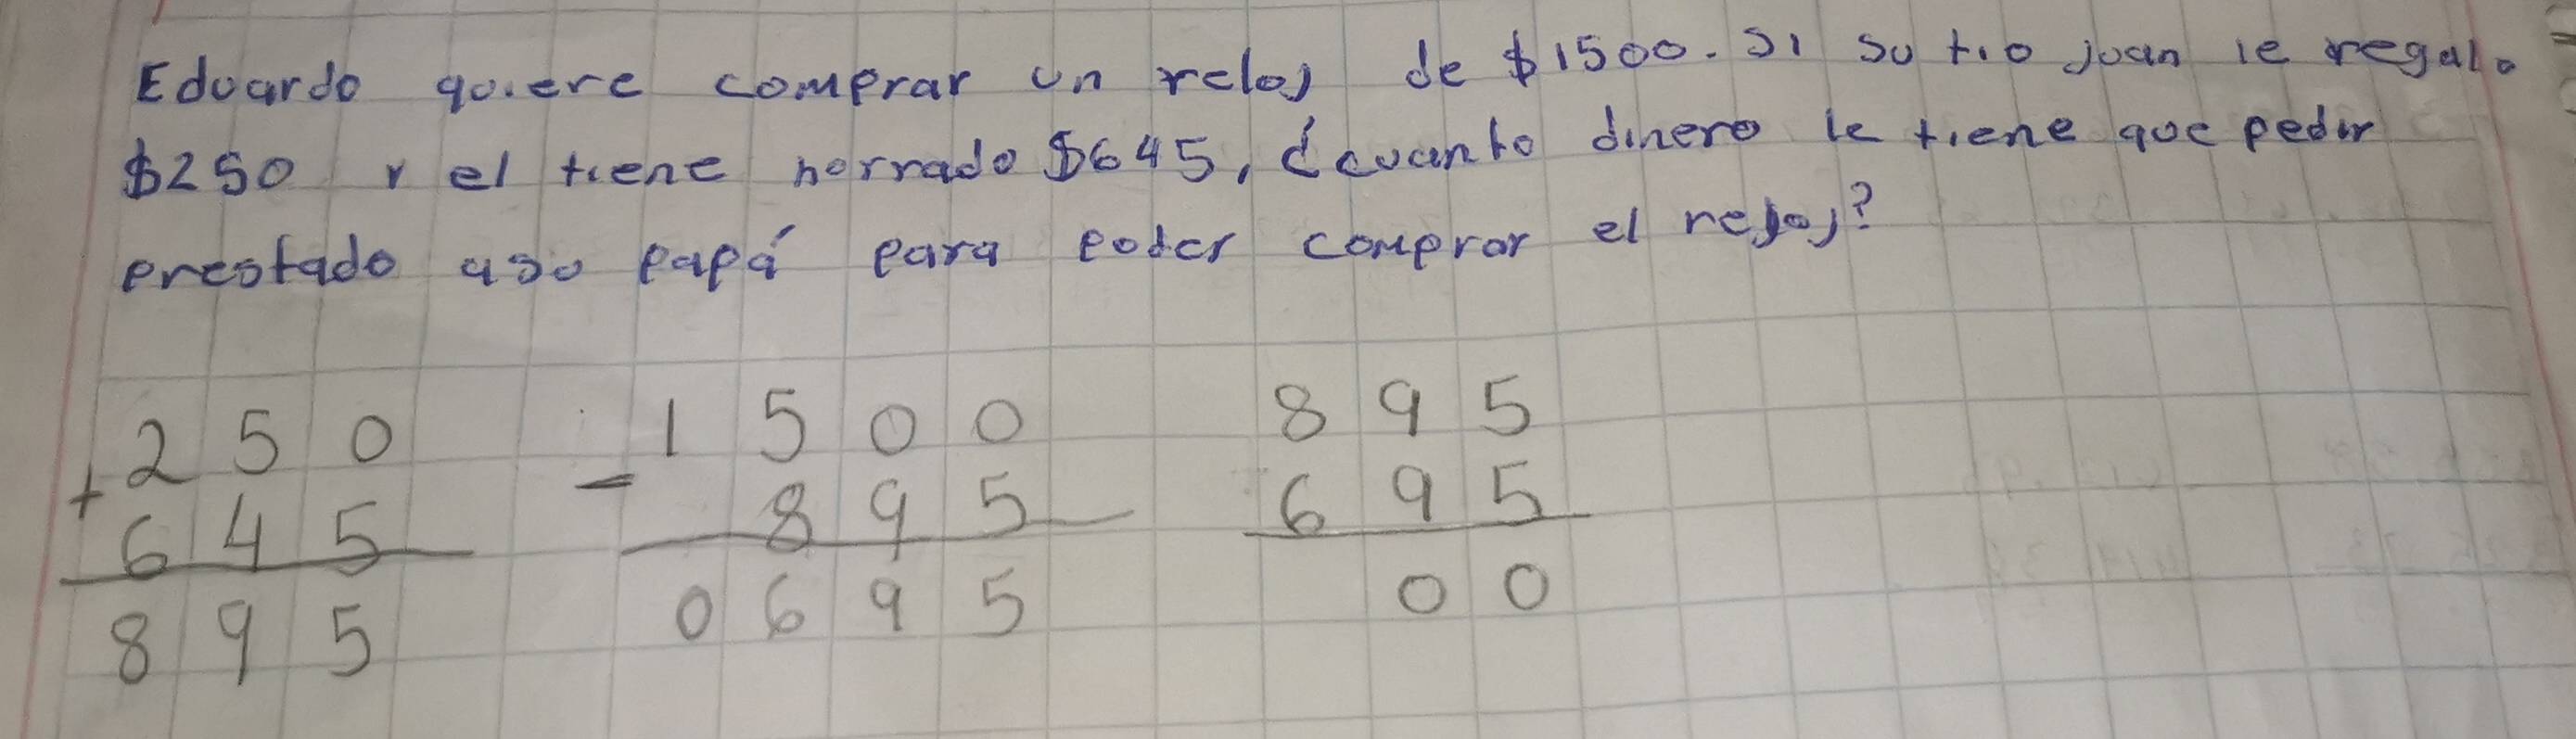 Eduardo quiere comprar un reloj de $1500. Si su tio juan le regala
$250 y el tiene horrado $645, ¿cuanto dinero le tiene que pedir
prestado a su papá para poder comprar el reloj?
250 1500 895
+ 645 - 895 695
895 0695 00